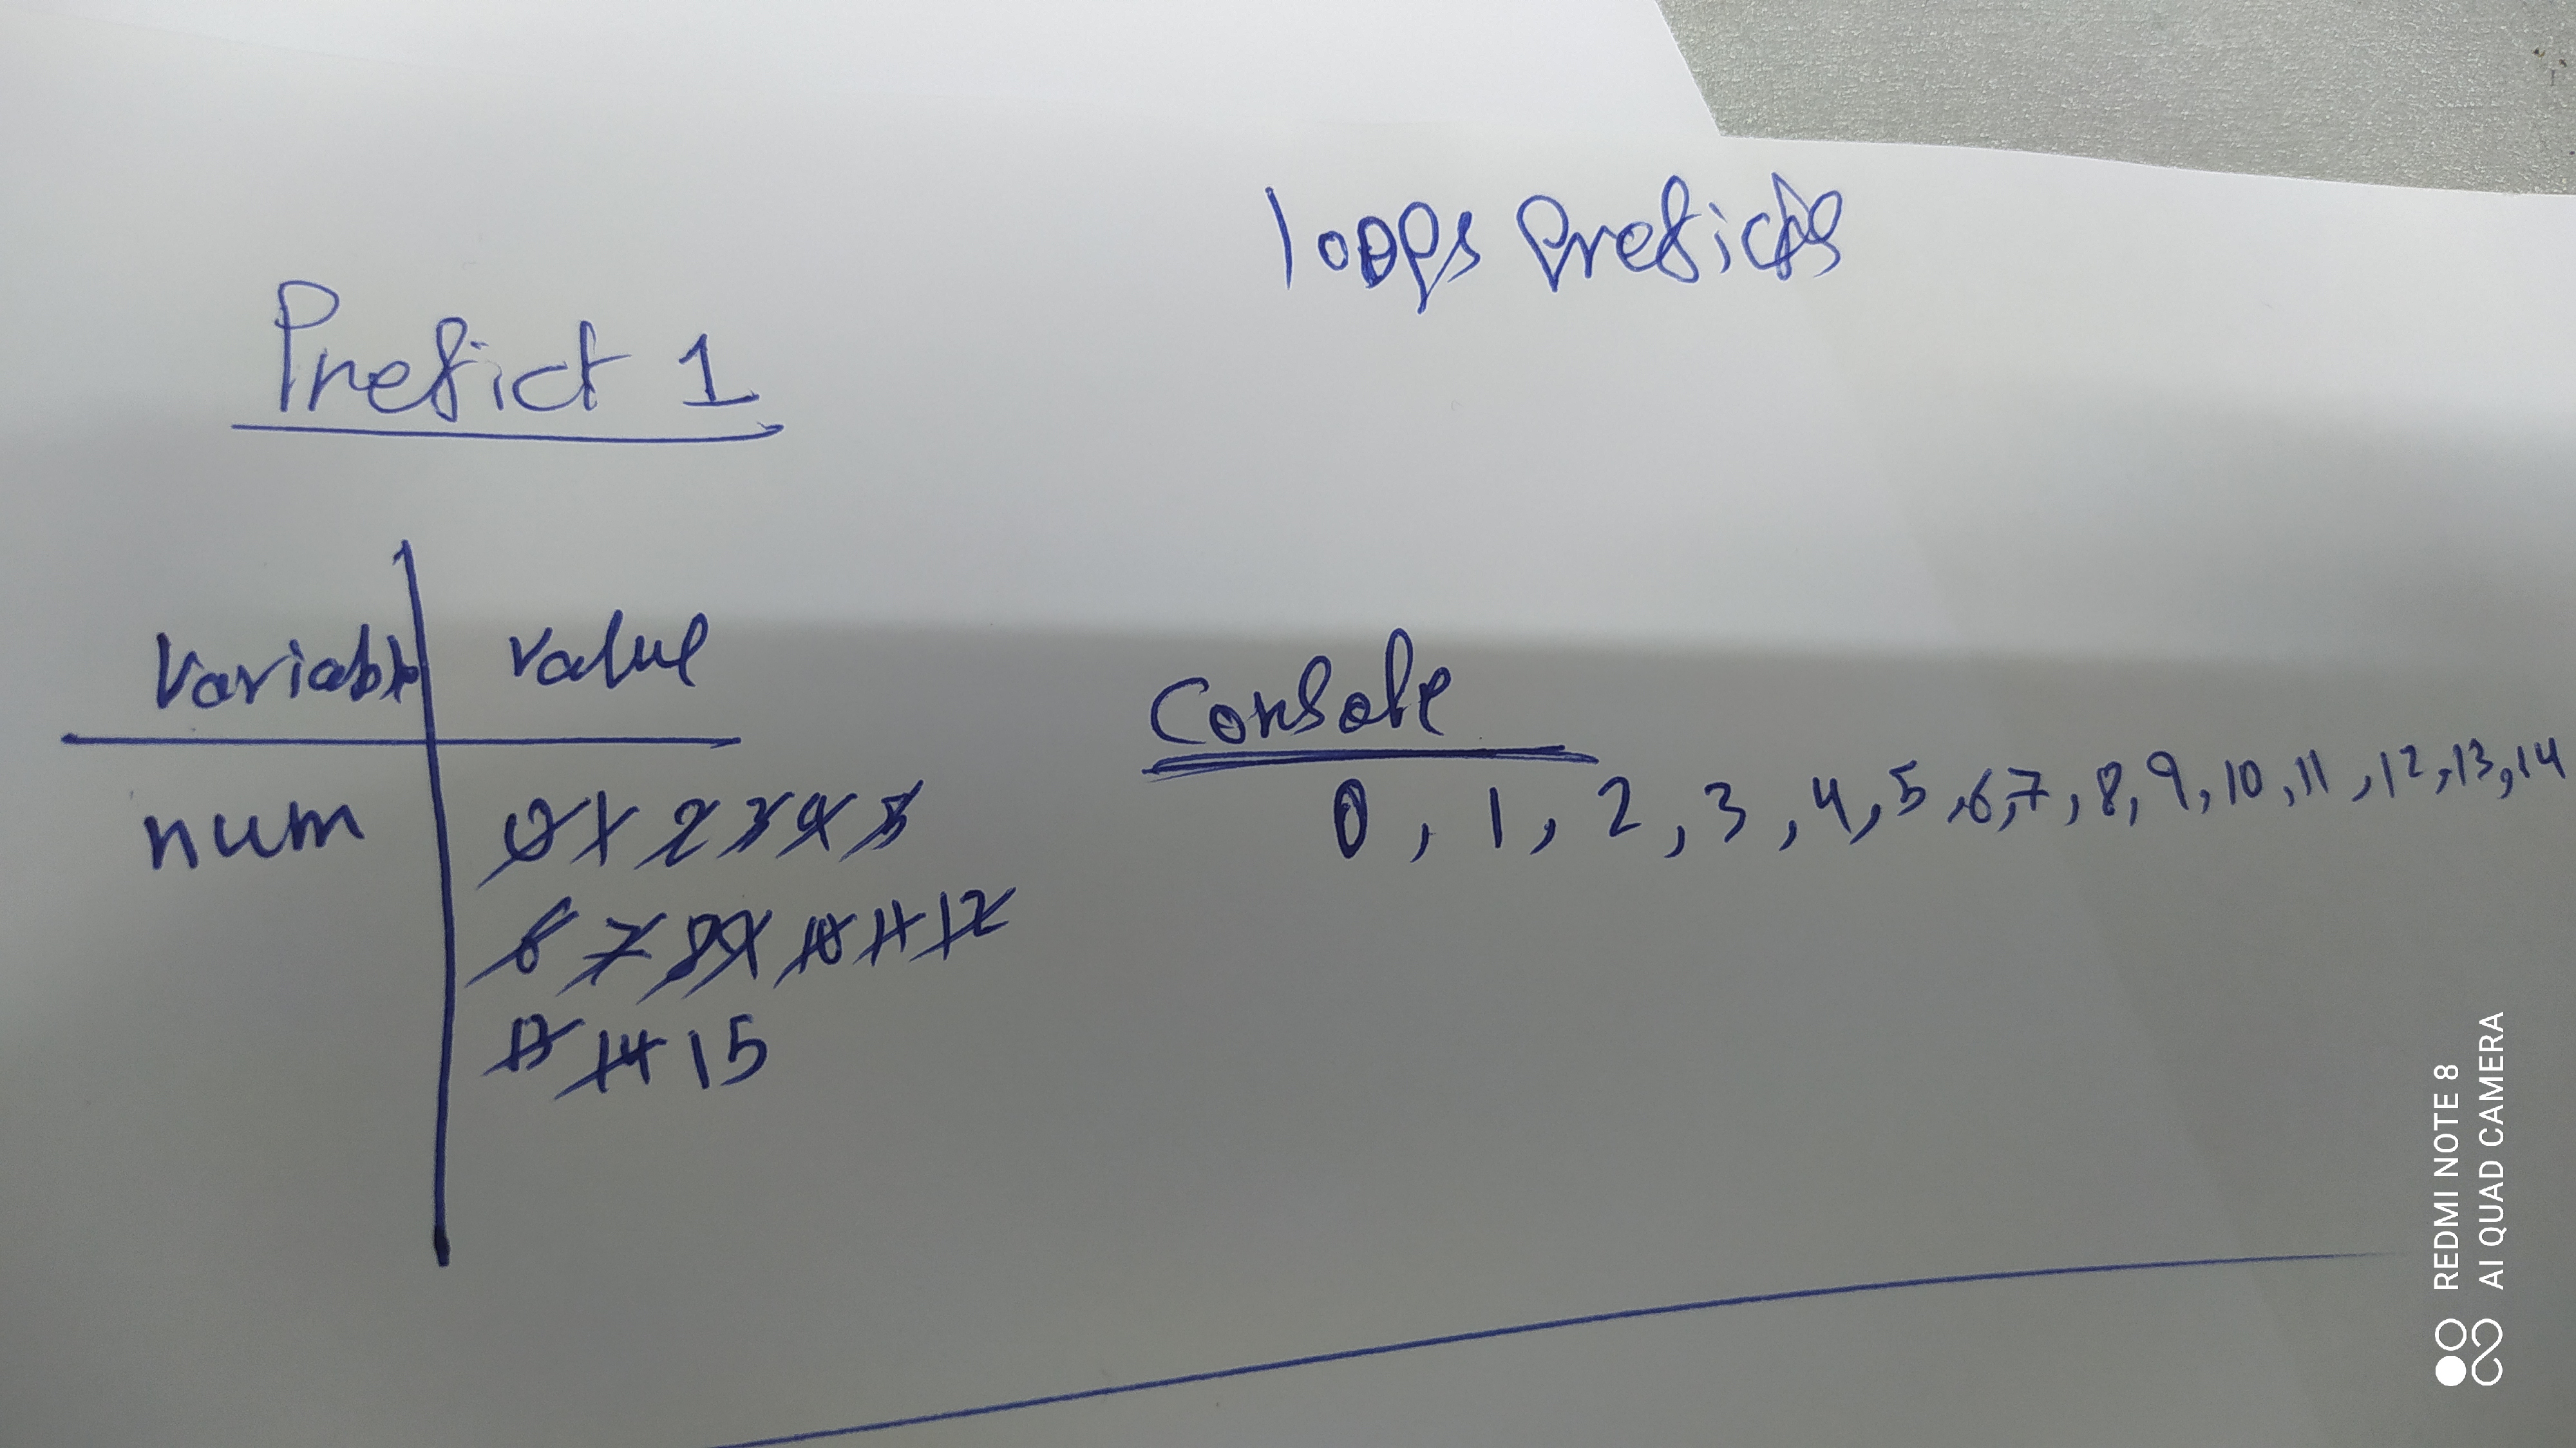 loops Predicts
Predict 1
Variable value
num 0 1 2 3 4 5
6 7 8 9 10 11 12
13 14 15
Console
0, 1, 2, 3, 4, 5, 6, 7, 8, 9, 10, 11, 12, 13, 14
REDMI NOTE 8
AI QUAD CAMERA